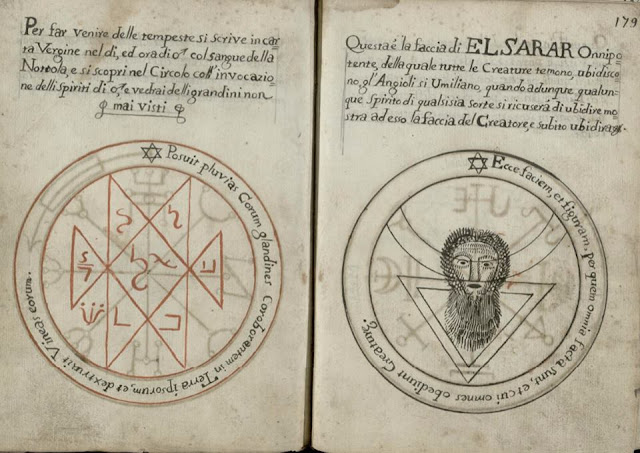 Per far venire delle tempeste si scrive in car
ta Vergine nel di, ed ora di ♂ col sangue della
Notola, e si scopri nel Circolo coll'invocazio
ne delli spiriti di ♂ e vedrai delli grandini non
mai visti
Posuit pluvias Corum glandines Coroborantem in Terra ipsorum, et dextruxit Vineas eorum.
179
Questa é la faccia di EL SARAR Onnipo
tente, della quale tutte le Creature temono, ubidisco
no, gl'Angioli si Umiliano, quando adunque qualun-
que Spirito di qualsisia sorte si ricuserà di ubidire mo
stra ad esso la faccia del Creatore, e subito ubidirà
Ecce faciem, et figuram, per quem omnia facta sunt, et cui omnes obediunt Creature.